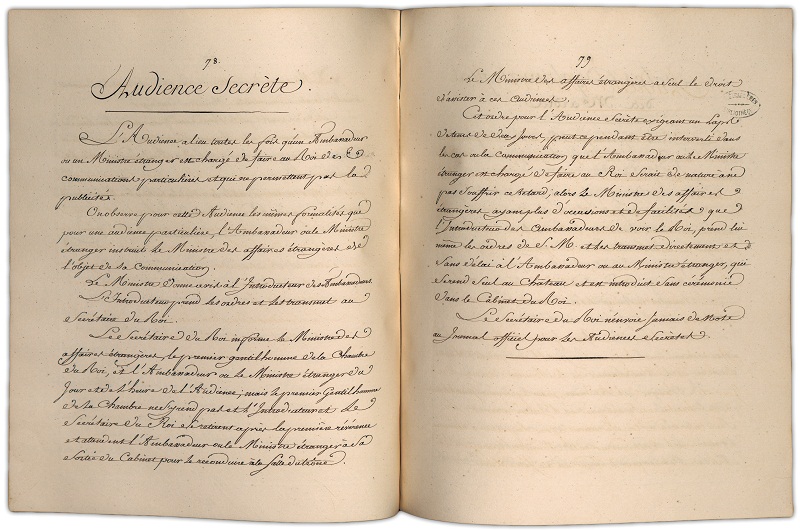 78.
Audience Secrète.
L'Audience a lieu toutes les fois qu'un Ambassadeur
ou un Ministre étranger est chargé de faire au Roi des
communications particulières et qui ne permettent pas la
publicité.
On observe pour cette Audience les mêmes formalités que
pour une audience particulière, l'Ambassadeur ou le Ministre
étranger instruit le Ministre des affaires étrangères de
l'objet de sa communication.
Le Ministre donne avis à l'Introducteur des Ambassadeurs
L'Introducteur prend les ordres et les transmet au
Secrétaire du Roi.
Le Secrétaire du Roi informe le Ministre des
affaires étrangères, le premier gentilhomme de la Chambre
du Roi, et l'Ambassadeur ou le Ministre étranger du
Jour et de l'heure de l'Audience; mais le premier Gentilhomme
de la Chambre ne s'y rend pas et l'Introducteur et le
Secrétaire du Roi se retirent après la première révérence
et attendent l'Ambassadeur ou le Ministre étranger à sa
Sortie du Cabinet pour le reconduire à la Salle du trône.
79
Le Ministre des affaires étrangères a seul le droit
d'assister à ces audiences.
Cet ordre pour l'Audience Secrète exigeant un laps
de tems de deux Jours, peut cependant être interverti dans
le cas où la communication, que l'Ambassadeur ou le Ministre
étranger est chargé de faire au Roi serait de nature à ne
pas souffrir ce Retard; alors le Ministre des affaires
étrangères ayant plus d'occasions et de facilités que
l'Introducteur des Ambassadeurs de voir le Roi, prend lui
même les ordres de S. M. et les transmet directement et
sans délai à l'Ambassadeur ou au Ministre étranger, qui
se rend seul au Château et est introduit sans cérémonie
dans le Cabinet du Roi.
Le Secrétaire du Roi n'envoie jamais de Note
au Journal officiel pour les Audiences Secrètes.